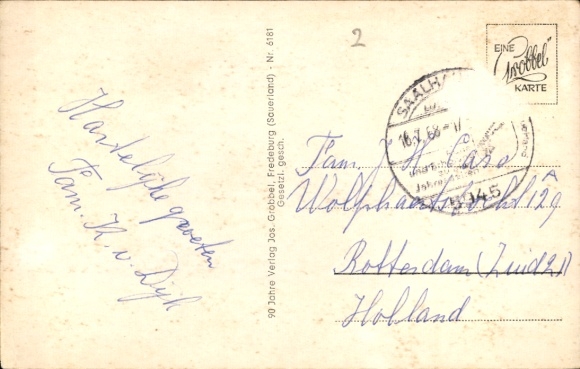 Hartelijke groeten
Fam. K. v. Dijk
90 Jahre Verlag Jos. Grobbel, Fredeburg (Sauerland) - Nr. 6181
Gesetzl. gesch.
2
EINE
Grobbel
KARTE
SAALHA
16.7.68
5945
Fam. J. H. Caro
Wolphaertsbocht 129 A
Rotterdam (Zuid 21)
Holland